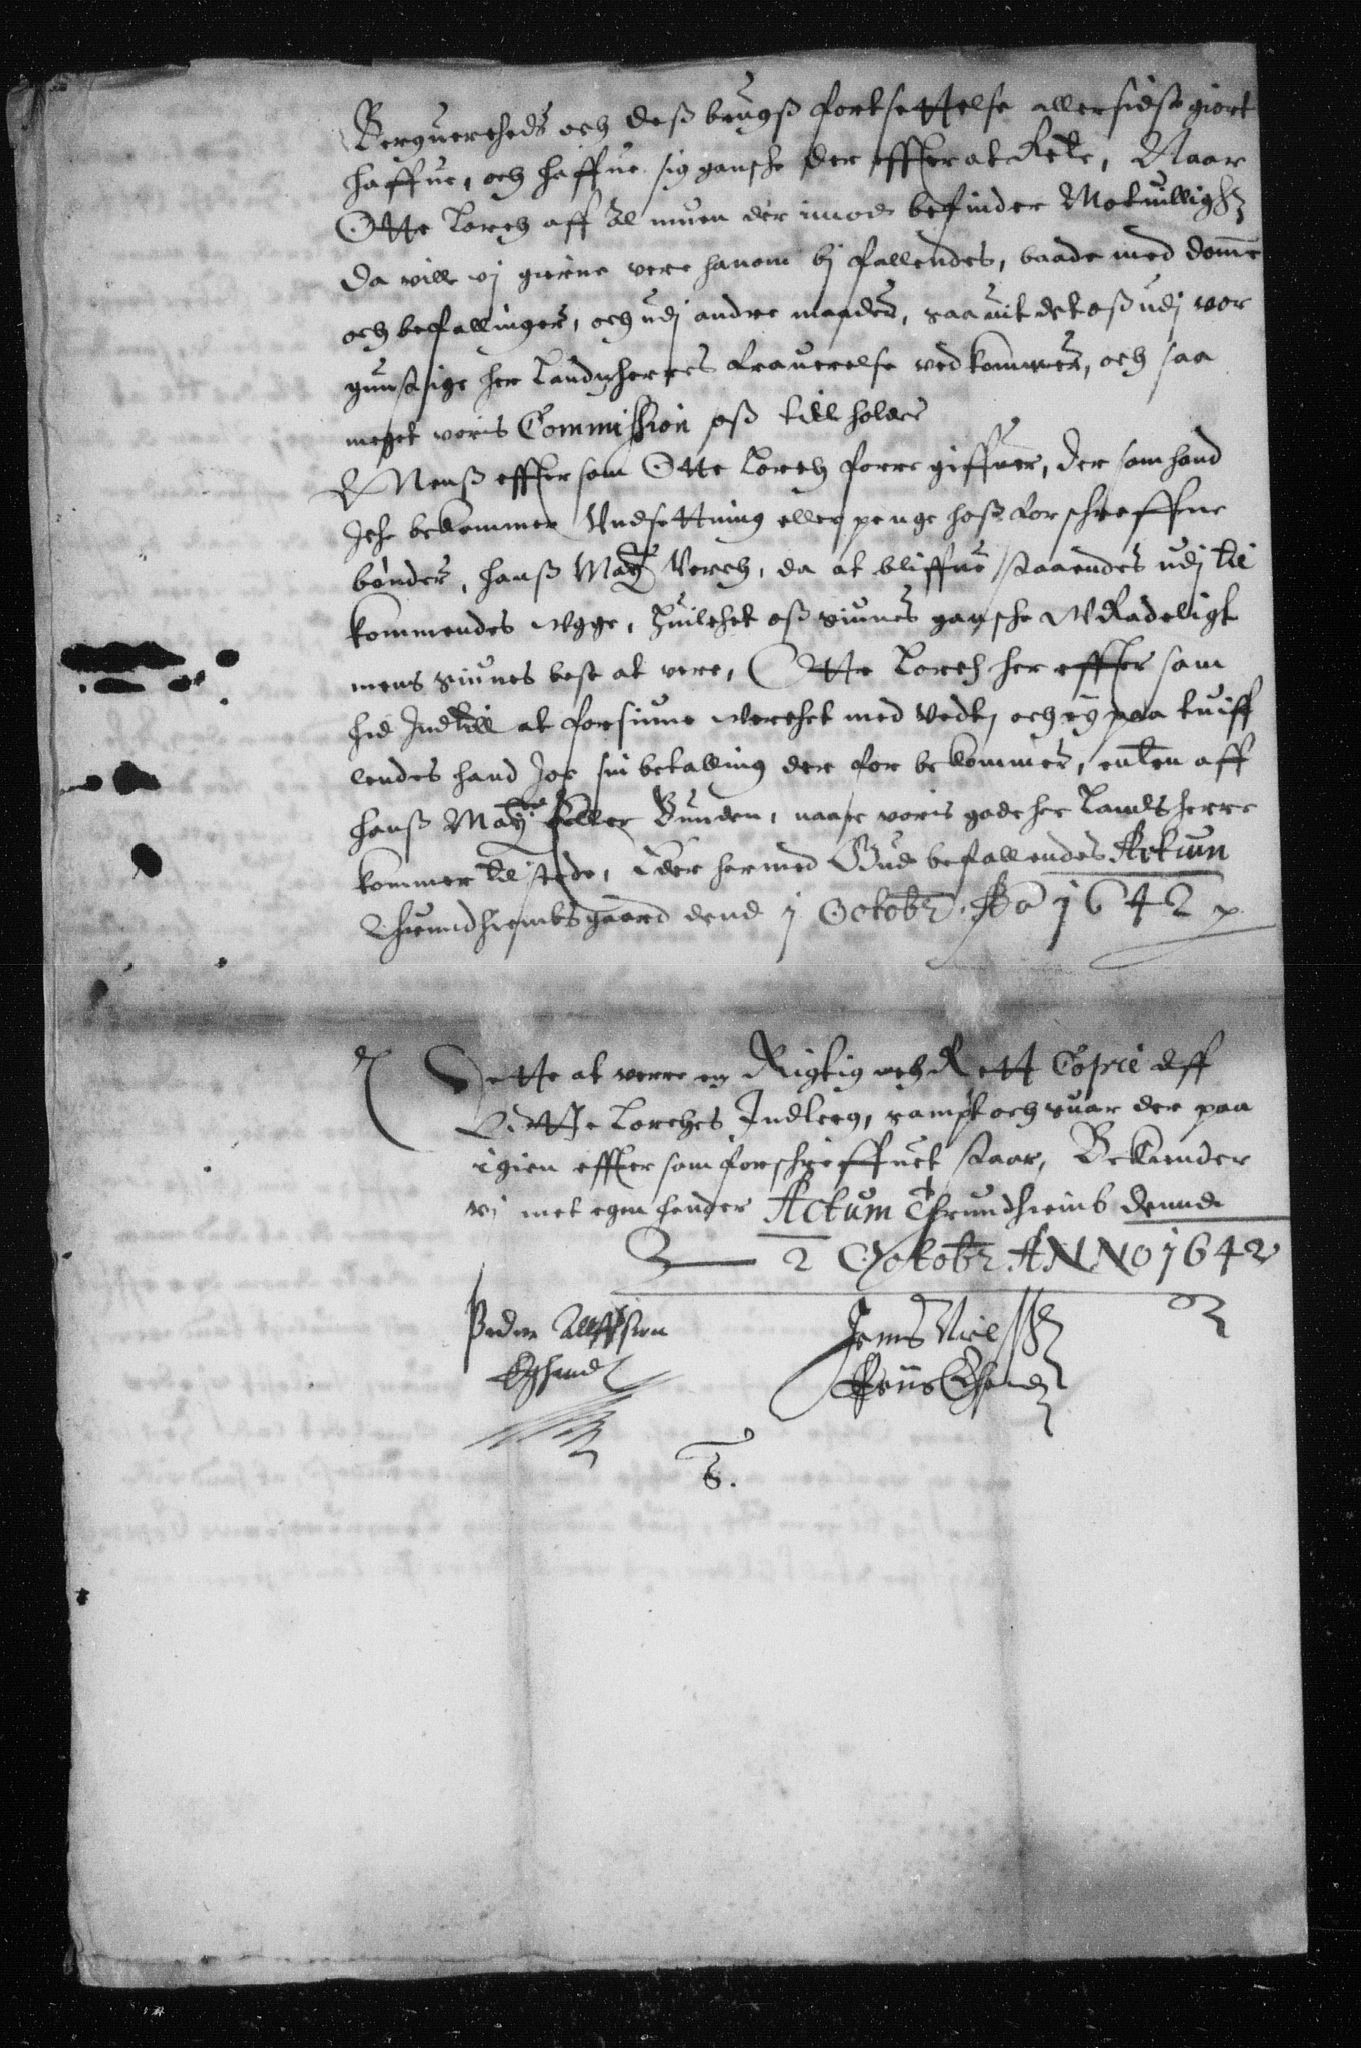 Bergvercheds och deß brugß fortsettelse allersidst giort
haffue, och haffue sig gansche der effter at Rete, Naar
Otte Lorch aff Almuen der imod befinder Motuilligh
da ville vj gierne vere hanom bj fallendes, baade med domme
och befallinger, och udj andre maader, saa uit det oß udj vor
gunstige her Landtzherres frauerelse vedkommer, och saa
meget voris Commission oß till holder
Menß effter som Otte Lorch forre giffuer, der som hand
Iche bekommer Undsettning eller penge hoß forschreffne
bønder, hanß May Verch, da at bliffue staaendes udj till
kommendes vgge, huilchet oß siunes gansche vRadeligt
mens siunes best at vere, Otte Lorch her effter som
hid Indtill at forsiune verchet med Vedt, och ej paa tuiff
lendes hand Jo sin betalling der for bekommer, enten aff
hanß May eller Bunden, naar voris gode her Landtsherre
kommer til stede, Eder hermed Gud befallendes Actum
Thrundhiembsgaard dend j Octobr. Ao 1642
Dette at verre en Rigtig och Rett Copie aff
Otte Lorches Indleeg, sampt och suar der paa
igien effter som forschreffuet staar, Bekiender
vj met egen hender Actum Thrundhiemb dennd
2 Octobr ANNO 1642
Peder Alleffsøn Jens Nielss
Eghand Egenhand